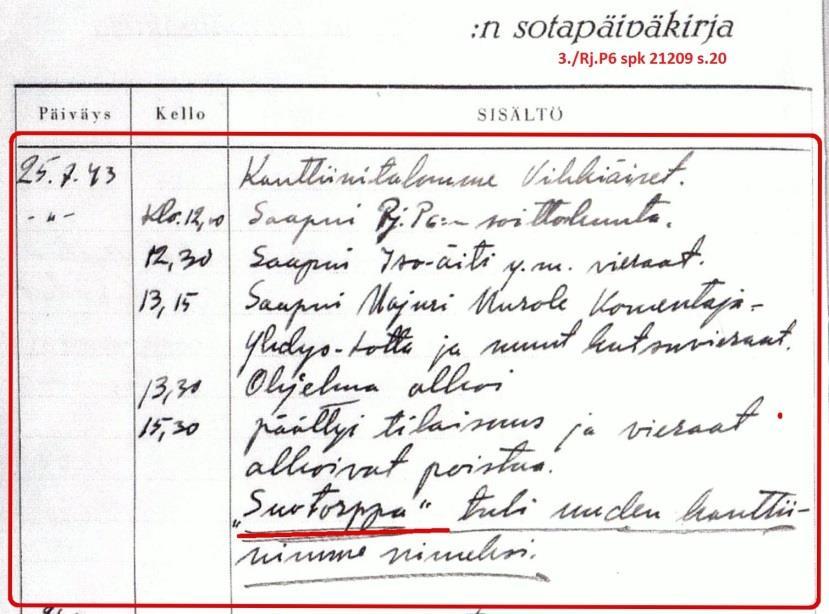 :n sotapäiväkirja
3./Rj.P6 spk 21209 s.20
Päiväys Kello SISÄLTÖ
25.7.43 Kanttiinitalomme Vihkiäiset.
-"- Klo. 12,00 Saapui Rj.P6:n soittokunta.
12,30 Saapui Iso-äiti y.m. vieraat.
13,15 Saapui Majuri Murole Komentaja-
Yhdys-lotta ja muut kutsuvieraat.
13,30 Ohjelma alkoi
15,30 päättyi tilaisuus ja vieraat
alkoivat poistua.
"Suotorppa" tuli uuden kanttii-
nimme nimeksi.